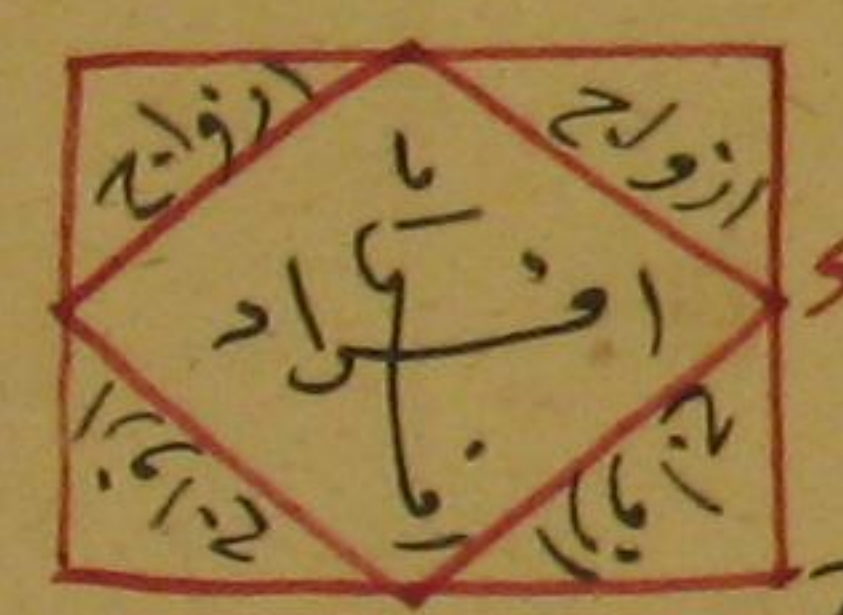 ازواج
ازواج
افراد
ازواج
ازواج